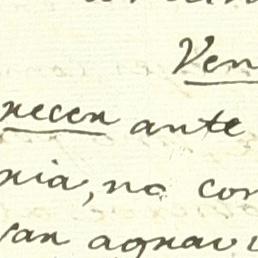 Ven
necen ante
nia, no con
van agravi